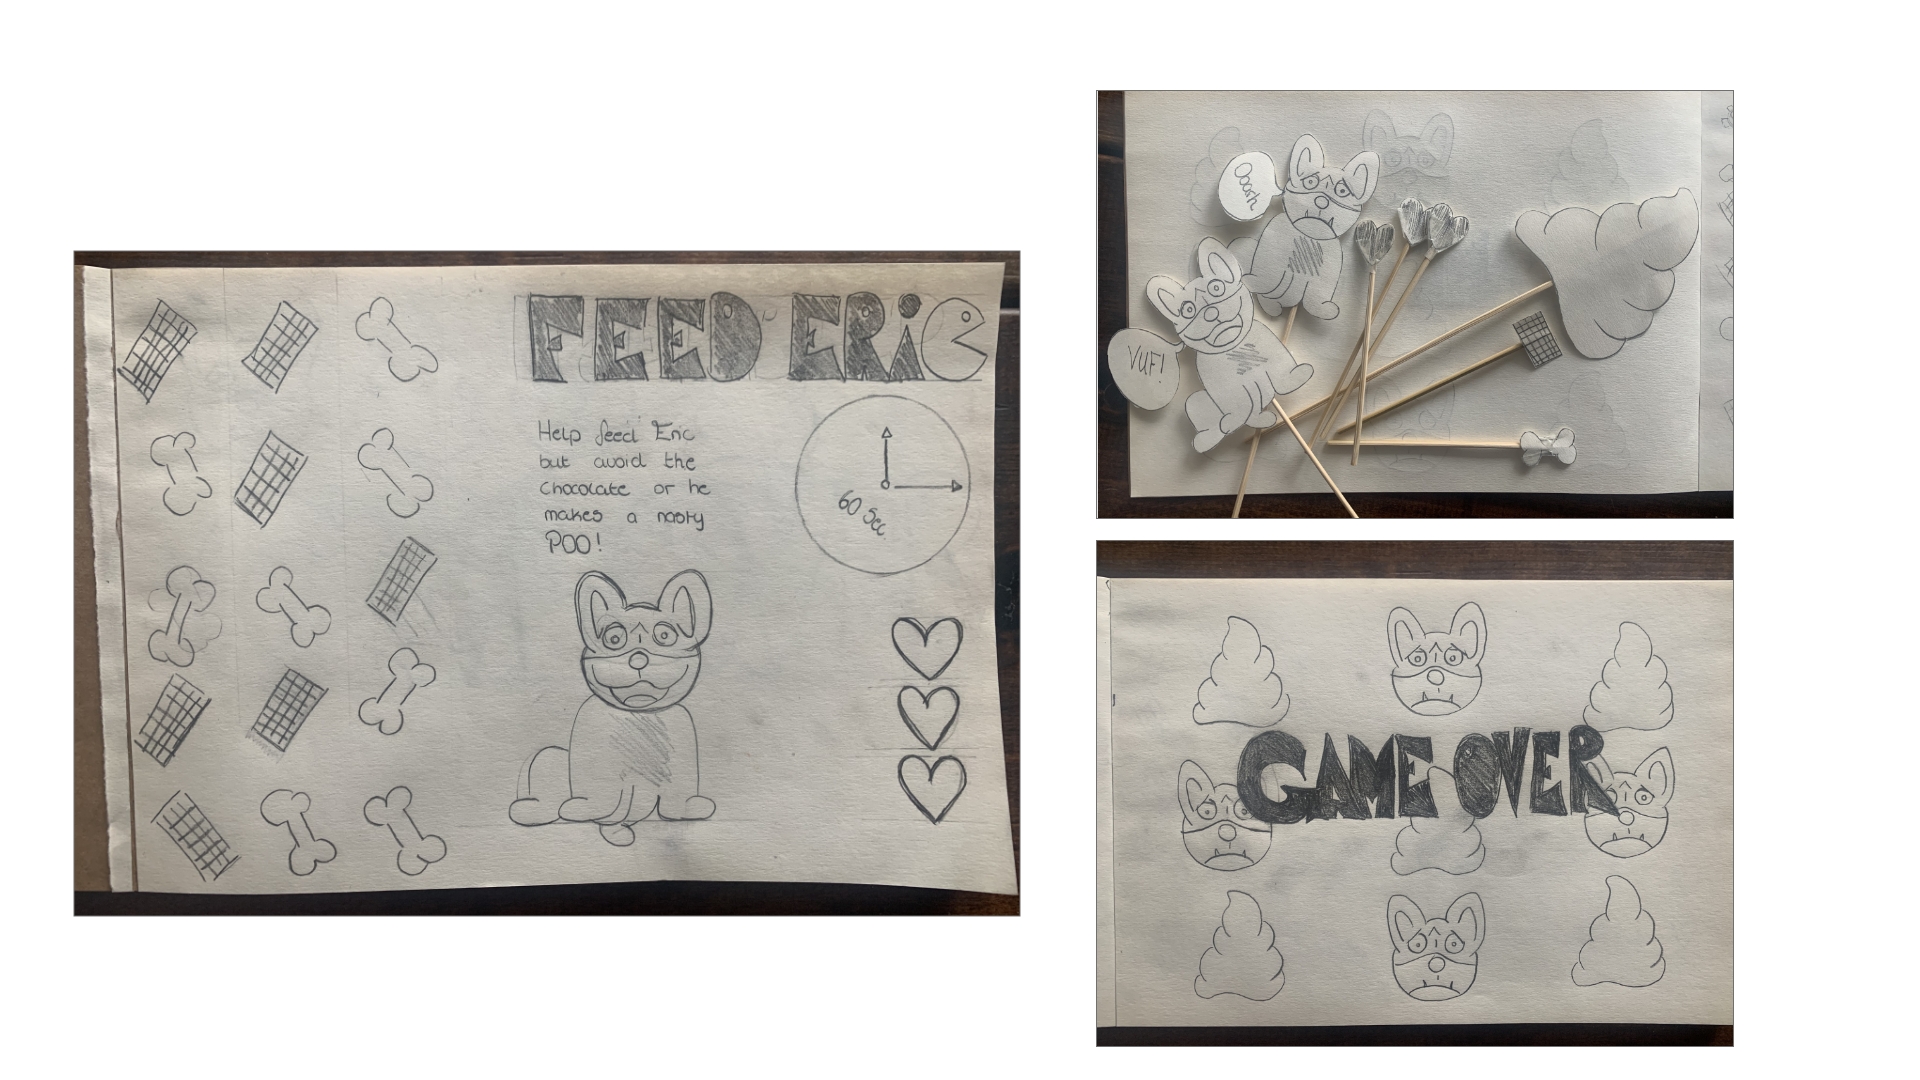 FEED ERiC
Help feed Eric
but avoid the
Chocolate or he
makes a nasty
POO!
60 Sec
Ooosh
VUF!
GAME OVER